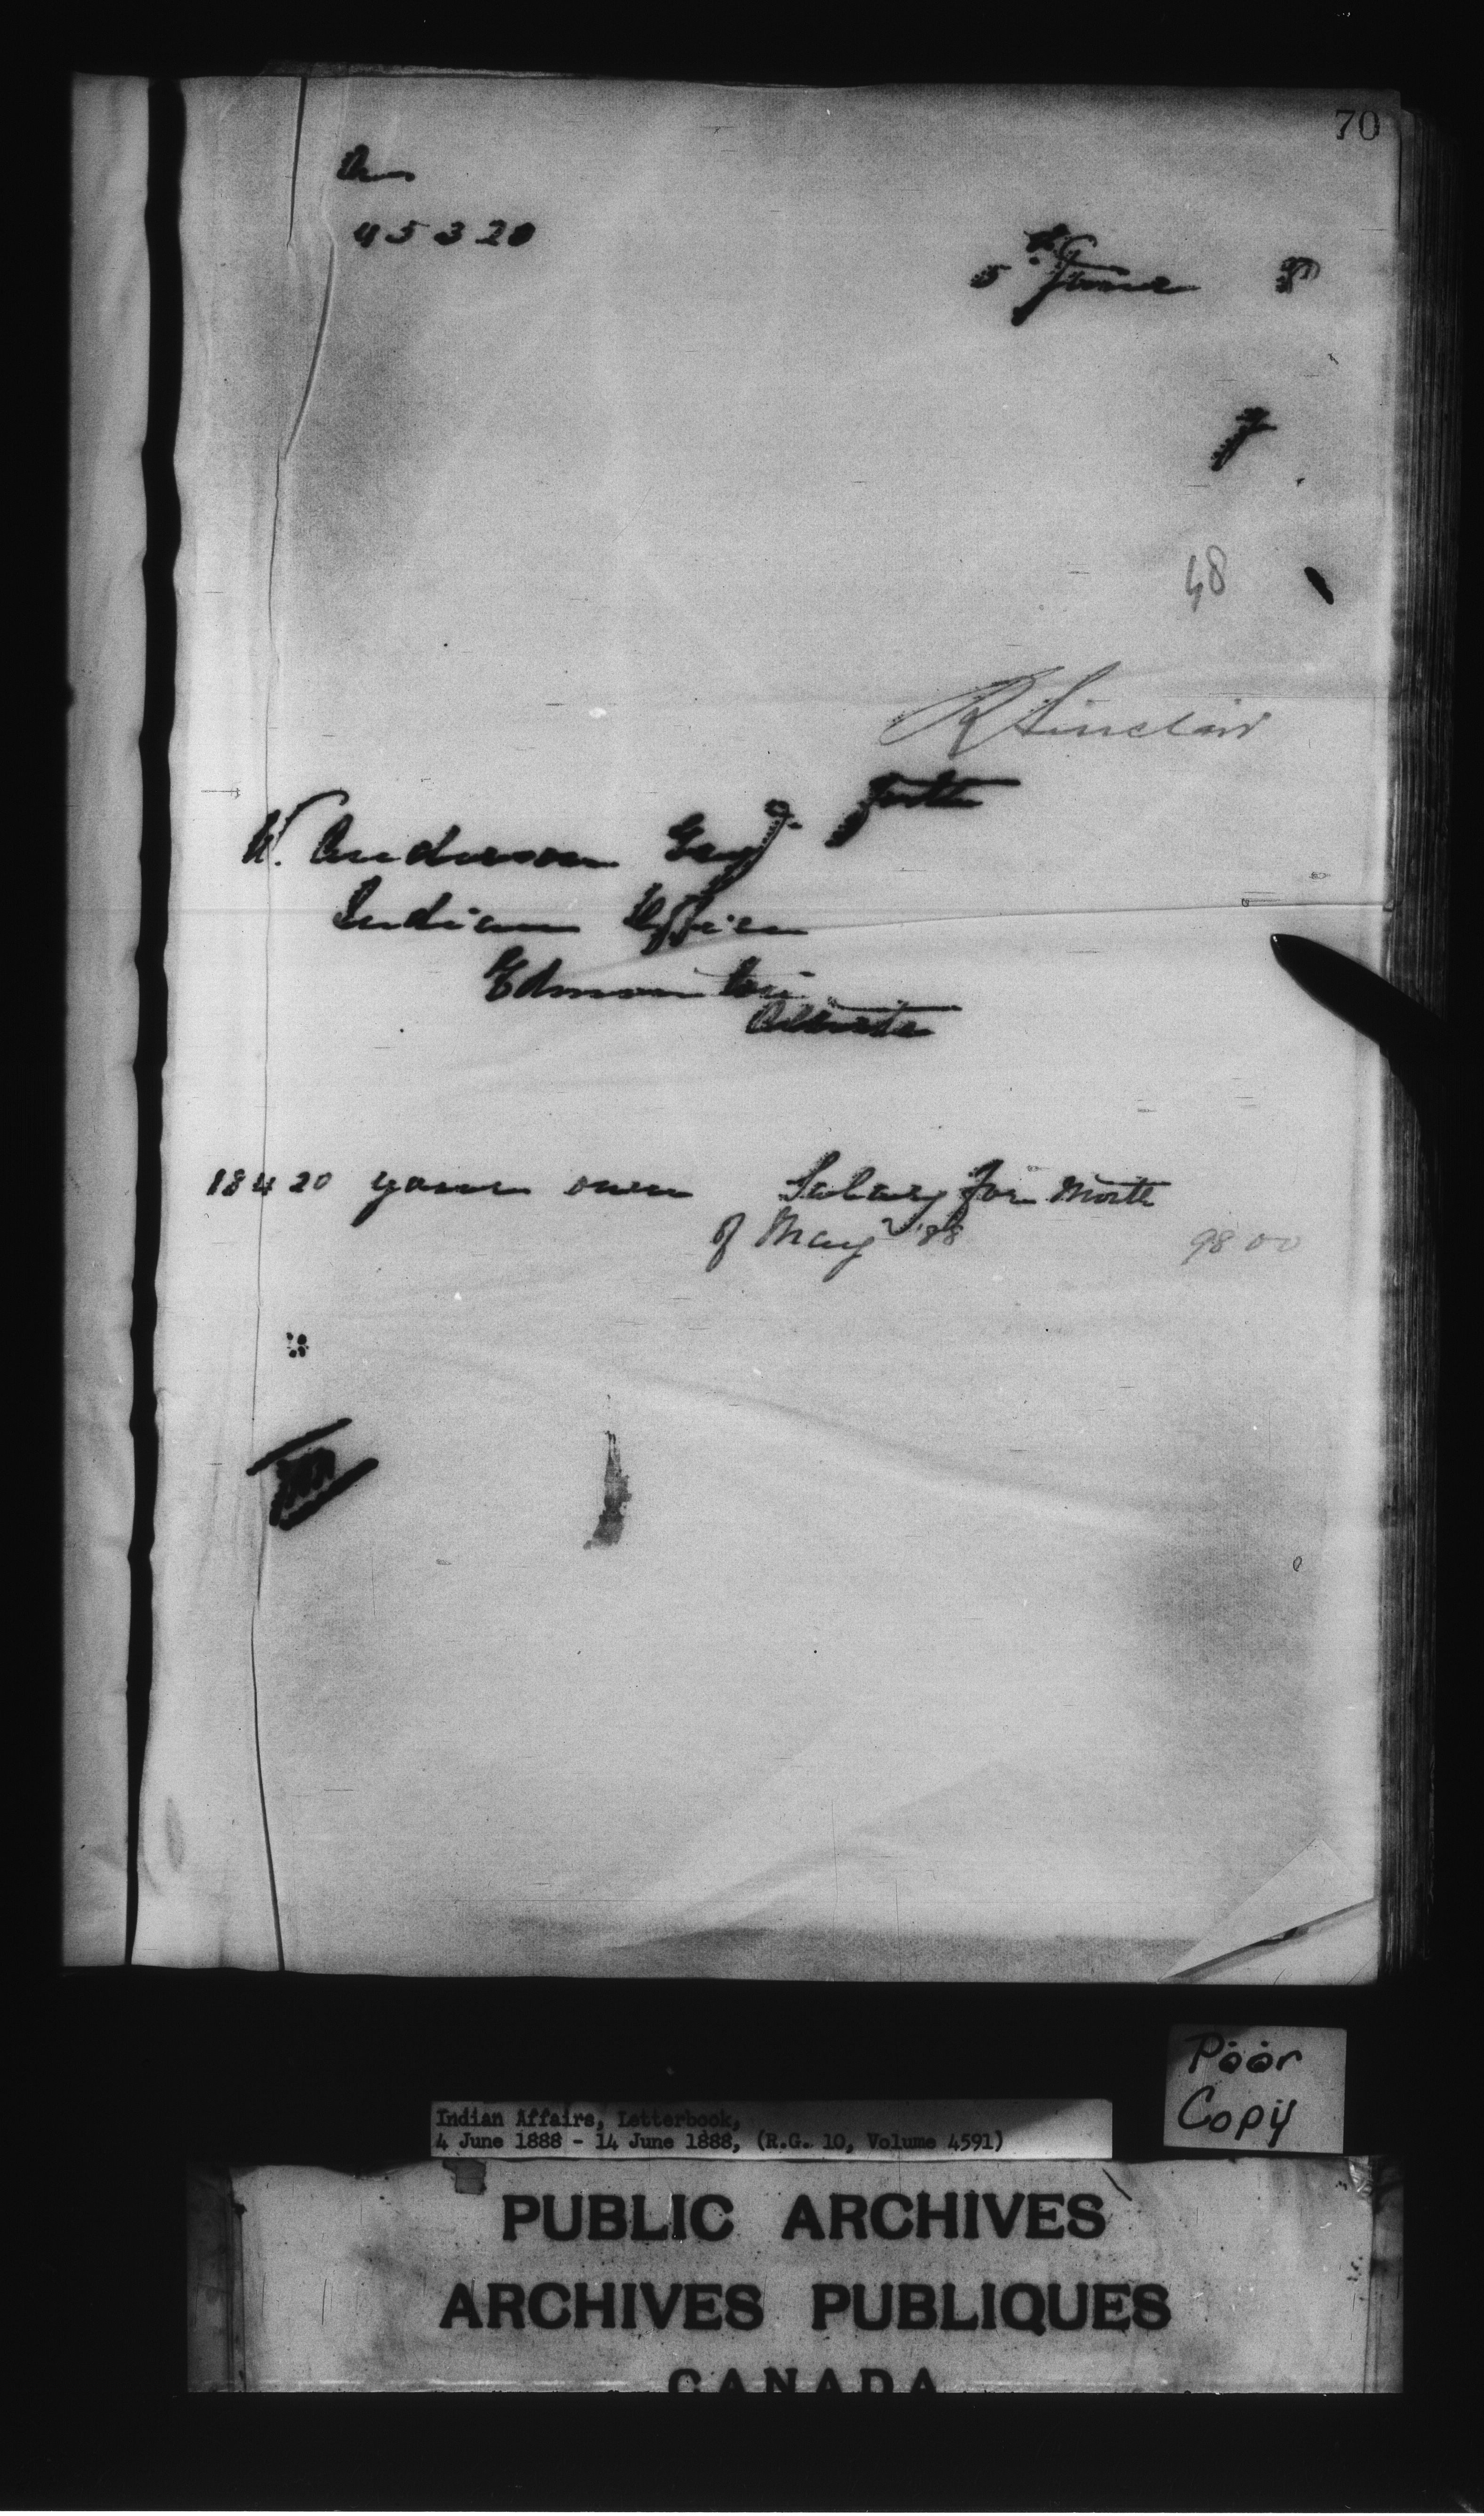 70
45320
5th June 8
48
R Sinclair
W. Anderson Esq.
Indian Office
Edmonton
Alberta
18420 your own Salary for Month
of May '88 98 00
Poor
Copy
Indian Affairs, Letterbook,
4 June 1888 - 14 June 1888, (R.G. 10, Volume 4591)
PUBLIC ARCHIVES
ARCHIVES PUBLIQUES
CANADA